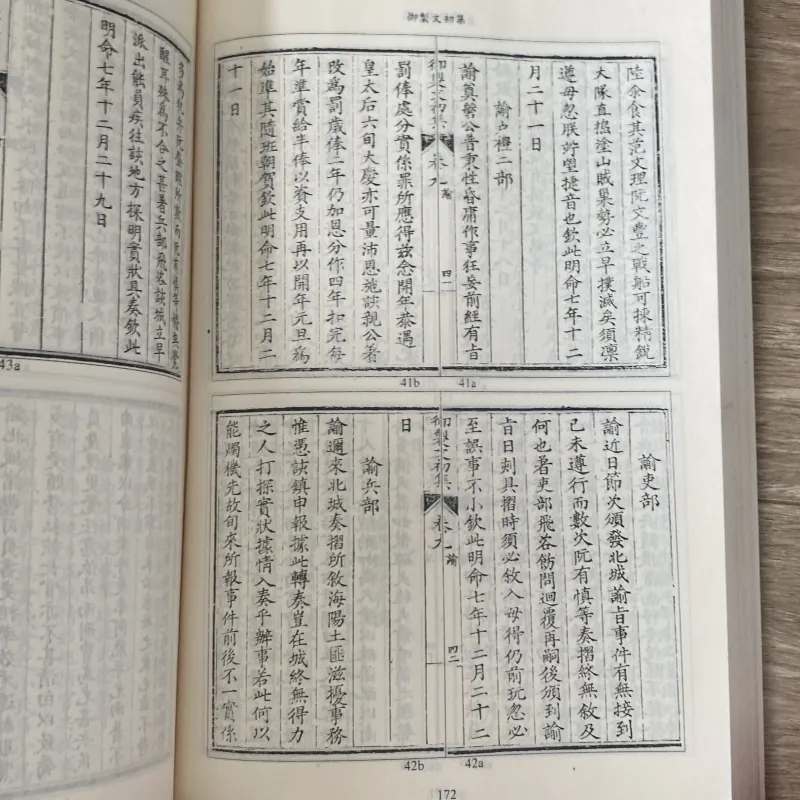 御製文初集
陸余食其范文理阮文豐之戰船可揀精銳
大隊直搗塗山賊巢勢必立早撲滅矣須凛
遵毋忽朕竚望捷音也欽此明命七年十二
月二十一日
諭吏禮二部
諭奠磐公晋秉性昏庸作事狂妄前經有旨
御製文初集 卷九 諭 四一
罰俸處分實係罪所應得兹念開年恭遇
皇太后六旬大慶亦可量沛恩施該親公著
改爲罰歲俸二年仍加恩分作四年扣完每
年準賞給半俸以資支用再以開年元旦爲
始準其隨班朝賀欽此明命七年十二月二
十一日
41b
41a
諭吏部
諭近日節次頒發北城諭旨事件有無接到
已未遵行而數次阮有慎等奏摺終無敘及
何也著吏部飛咨飭問迴覆再嗣後頒到諭
旨日刻具摺時須必敘入毋得仍前玩忽必
至誤事不小欽此明命七年十二月二十二
御製文初集 卷九 諭 四二
日
諭兵部
諭邇來北城奏摺所敘海陽土匪滋擾事務
惟憑該鎮申報據此轉奏豈在城終無得力
之人打探實狀據情入奏乎辦事若此何以
能燭機先故旬來所報事件前後不一實係
42b
42a
172
醒耳殊爲不合之甚著兵部飛咨該城立早
派出能員疾往該地方探明實狀具奏欽此
明命七年十二月二十九日
43a